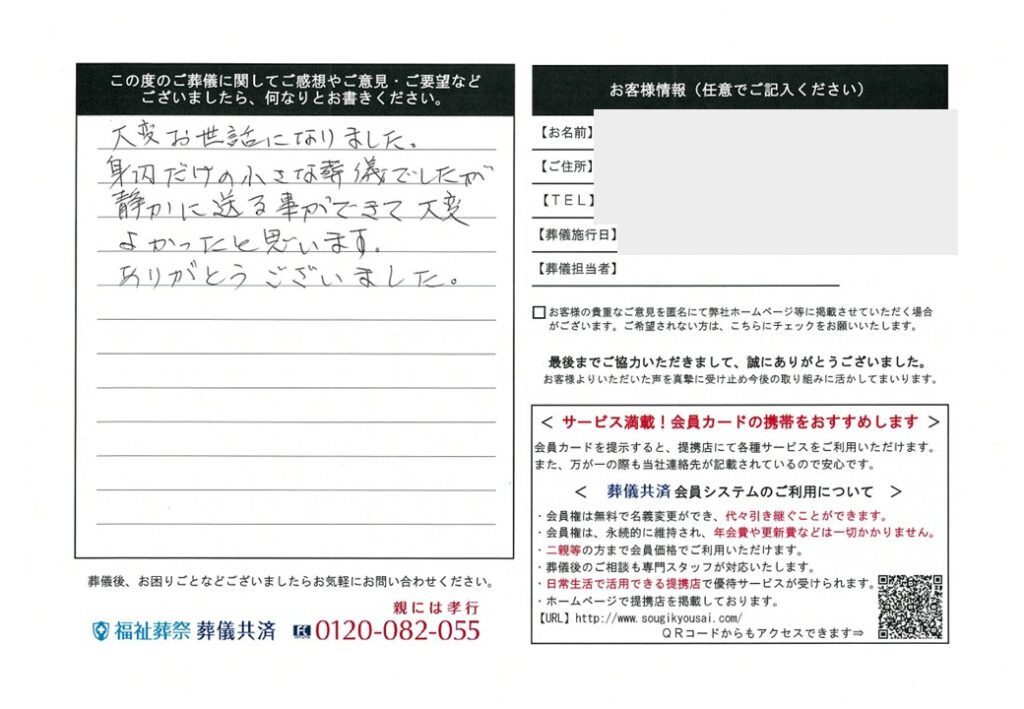 この度のご葬儀に関してご感想やご意見・ご要望など
ございましたら、何なりとお書きください。
大変お世話になりました。
身辺だけの小さな葬儀でしたが
静かに送る事ができて大変
よかったと思います。
ありがとうございました。
葬儀後、お困りごとなどございましたらお気軽にお問い合わせください。
親には孝行
福祉葬祭 葬儀共済 0120-082-055
お客様情報（任意でご記入ください）
【お名前】
【ご住所】
【TEL】
【葬儀施行日】
【葬儀担当者】
お客様の貴重なご意見を匿名にて弊社ホームページ等に掲載させていただく場合
がございます。ご希望されない方は、こちらにチェックをお願いいたします。
最後までご協力いただきまして、誠にありがとうございました。
お客様よりいただいた声を真摯に受け止め今後の取り組みに活かしてまいります。
＜ サービス満載！会員カードの携帯をおすすめします ＞
会員カードを提示すると、提携店にて各種サービスをご利用いただけます。
また、万が一の際も当社連絡先が記載されているので安心です。
＜ 葬儀共済 会員システムのご利用について ＞
・会員権は無料で名義変更ができ、代々引き継ぐことができます。
・会員権は、永続的に維持され、年会費や更新費などは一切かかりません。
・二親等の方まで会員価格でご利用いただけます。
・葬儀後のご相談も専門スタッフが対応いたします。
・日常生活で活用できる提携店で優待サービスが受けられます。
・ホームページで提携店を掲載しております。
【URL】http://www.sougikyousai.com/
QRコードからもアクセスできます⇒